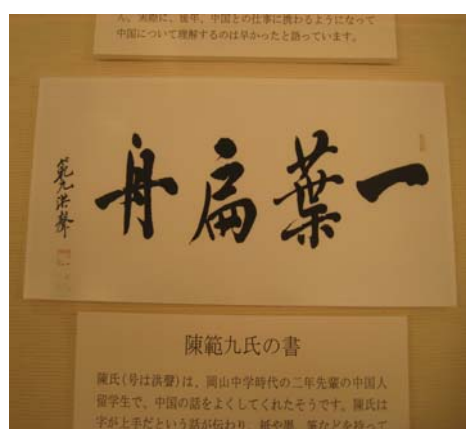 ん。実際に、後年、中国との仕事に携わるようになって
中国について理解するのは早かったと語っています。
一葉扁舟
範九洪聲
陳範九氏の書
陳氏(号は洪聲)は、岡山中学時代の二年先輩の中国人
留学生で、中国の話をよくしてくれたそうです。陳氏は
字が上手だという話が伝わり、紙や墨、筆などを持って